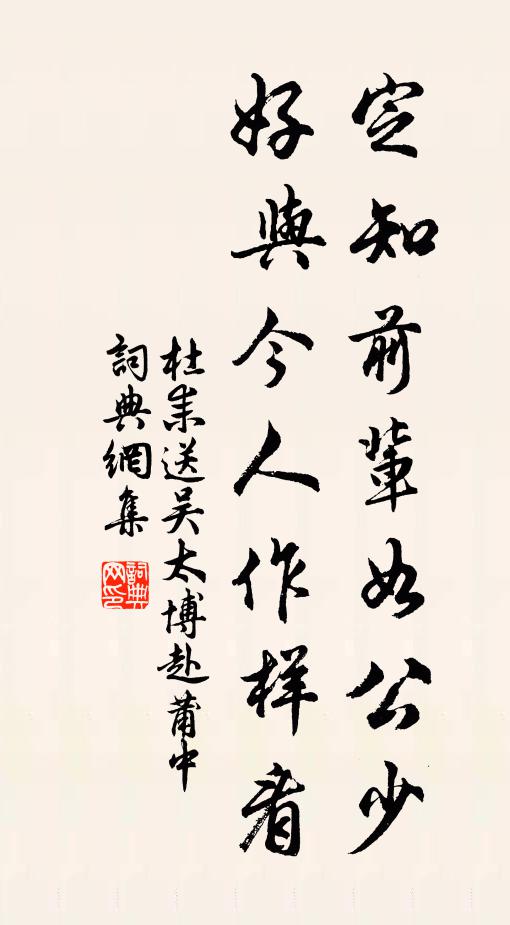 定知前輩如公少
好與今人作样看
杜耒送吴太博赴莆中
詞典網集
詞典网印